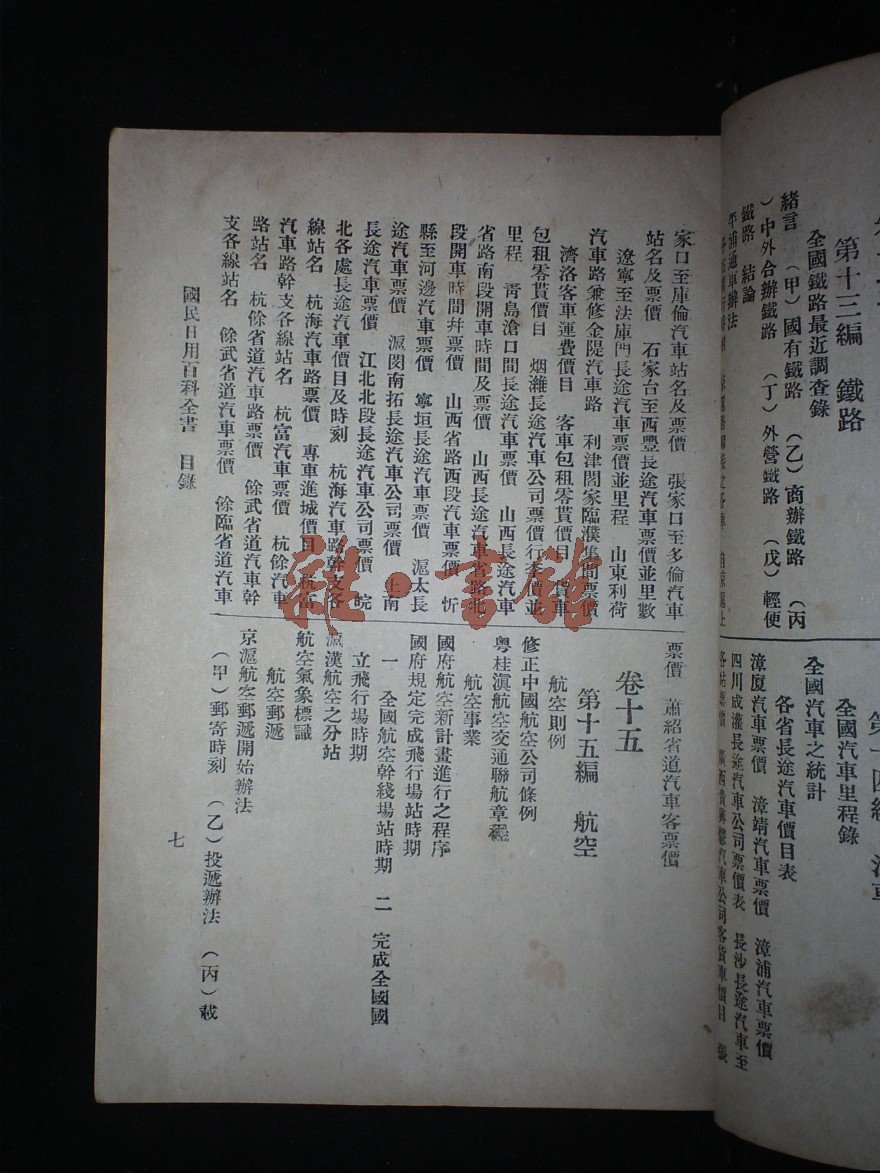 第十三編　鐵路
全國鐵路最近調查錄
緒言　（甲）國有鐵路　（乙）商辦鐵路　（丙
）中外合辦鐵路　（丁）外營鐵路　（戊）輕便
鐵路　結論
平浦通車辦法
全國汽車里程錄
全國汽車之統計
各省長途汽車價目表
漳廈汽車票價　漳靖汽車票價　漳浦汽車票價
四川成灌長途汽車公司票價表　長沙長途汽車至
家口至庫倫汽車站名及票價　張家口至多倫汽車
站名及票價　石家台至西豐長途汽車票價並里數
遼寧至法庫門長途汽車票價並里程　山東利荷
汽車路兼修金隄汽車路　利津閻家臨濮集間票價
濟洛客車運費價目　客車包租零貰價目　貨車
包租零貰價目　烟濰長途汽車公司票價行李價並
里程　靑島滄口間長途汽車票價　山西長途汽車
省路南段開車時間及票價　山西長途汽車省路北
段開車時間幷票價　山西省路西段汽車票價　忻
縣至河邊汽車票價　寧垣長途汽車票價　滬太長
途汽車票價　滬閔南拓長途汽車公司票價　上南
長途汽車票價　江北北段長途汽車公司票價　皖
北各處長途汽車價目及時刻　杭海汽車路幹支各
線站名　杭海汽車路票價　專車進城價目　杭富
汽車路幹支各線站名　杭富汽車票價　杭餘汽車
路站名　杭餘省道汽車路票價　餘武省道汽車幹
支各線站名　餘武省道汽車票價　餘臨省道汽車
票價　蕭紹省道汽車客票價
卷十五
第十五編　航空
航空則例
修正中國航空公司條例
粵桂滇航空交通聯航章程
航空事業
國府航空新計畫進行之程序
國府規定完成飛行場站時期
一　全國航空幹綫場站時期　二　完成全國國
立飛行場時期
滬漢航空之分站
航空氣象標識
航空郵遞
京滬航空郵遞開始辦法
（甲）郵寄時刻　（乙）投遞辦法　（丙）載
國民日用百科全書　目錄
七
雜·書館